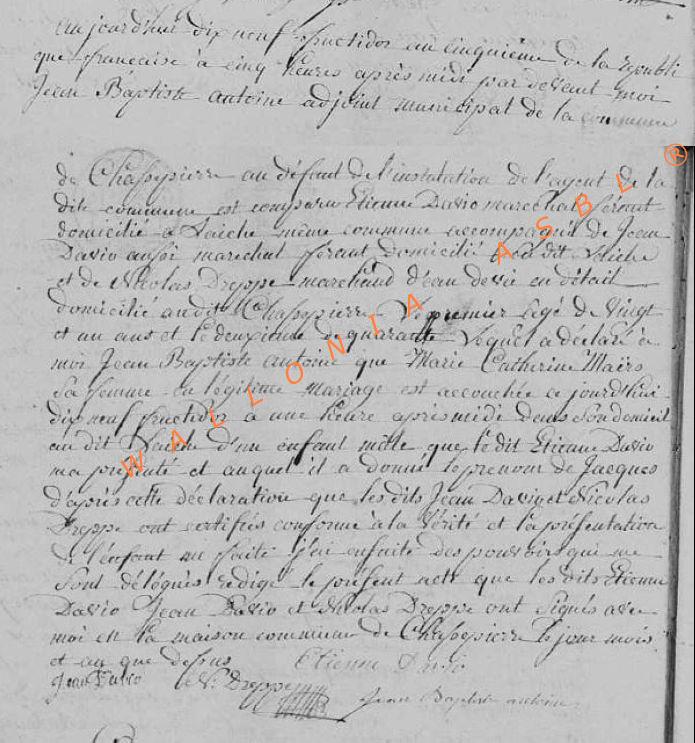 aujourd'hui dix neuf fructidor an cinquieme de la republi
que francaise à cinq heures après midi par devant moi
Jean Baptiste antoine adjoint municipal de la commune
de Chassepierre au défaut de l'installation de l'agent de la
dite commune est comparu Etienne Davio marechal férant
domicilié à Laiche même commune accompagné de Jean
Davio aussi marechal férant domicilié audit Laiche
et de Nicolas Dreppe marchand d'eau de vie en détail
domicilié audit Chassepierre le premier agé de vingt
et un ans et le deuxieme de quarante lequel a déclaré à
moi Jean Baptiste antoine que Marie Catherine Maïrs
Sa femme en légitime mariage est accouchée ce jourd'hui
dix neuf fructidor à une heure après midi dans son domicil
au dit Laiche d'un enfant male que le dit Etienne Davio
ma présenté et auquel il a donné le prenom de Jacques
d'après cette déclaration que les dits Jean Davio et Nicolas
Dreppe ont certifiés conforme à la vérité et la présentation
de l'enfant me faite j'ai ensuite des pouvoirs qui me
Sont délégués rédigé le présent acte que les dits Etienne
Davio Jean Davio et Nicolas Dreppe ont signés avec
moi en la maison commune de Chassepierre le jour mois
et an que dessus Etienne Davio
Jean Davio N. Dreppe Jean Baptiste antoine
WALLONIA ASBL ®